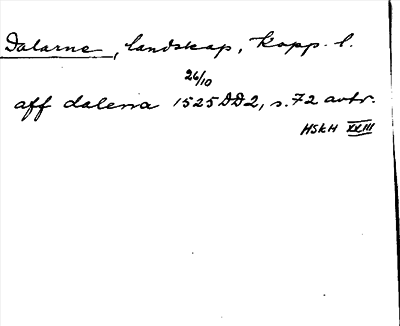 Dalarne, landskap, Kopp. l.
26/10
aff dalena 1525 DD2, s. 72 avtr.
HSKH XXIII